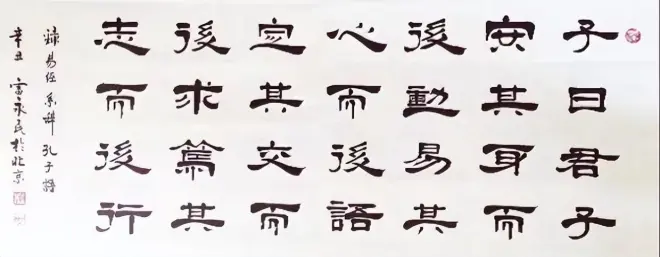 子曰君子
安其身而
後動易其
心而後語
定其交而
後求篤其
志而後行
錄易经系辞孔子語
辛丑富永民於北京